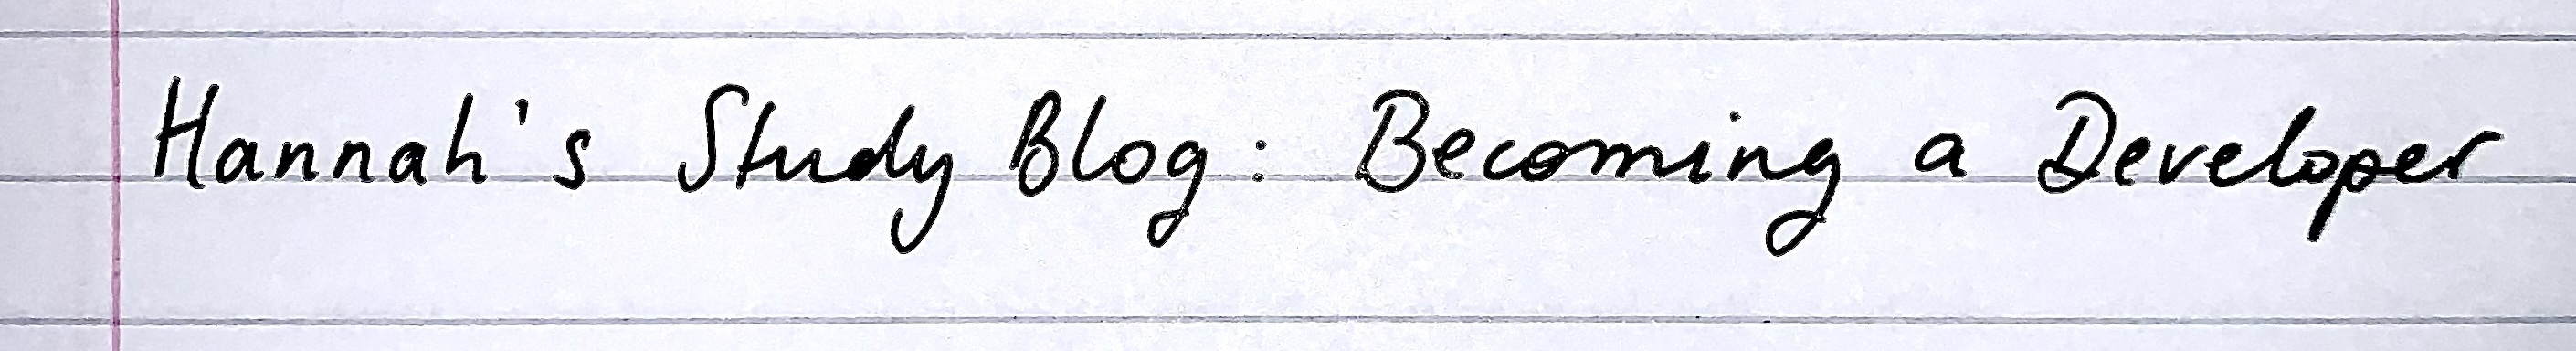 Hannah's Study Blog: Becoming a Developer